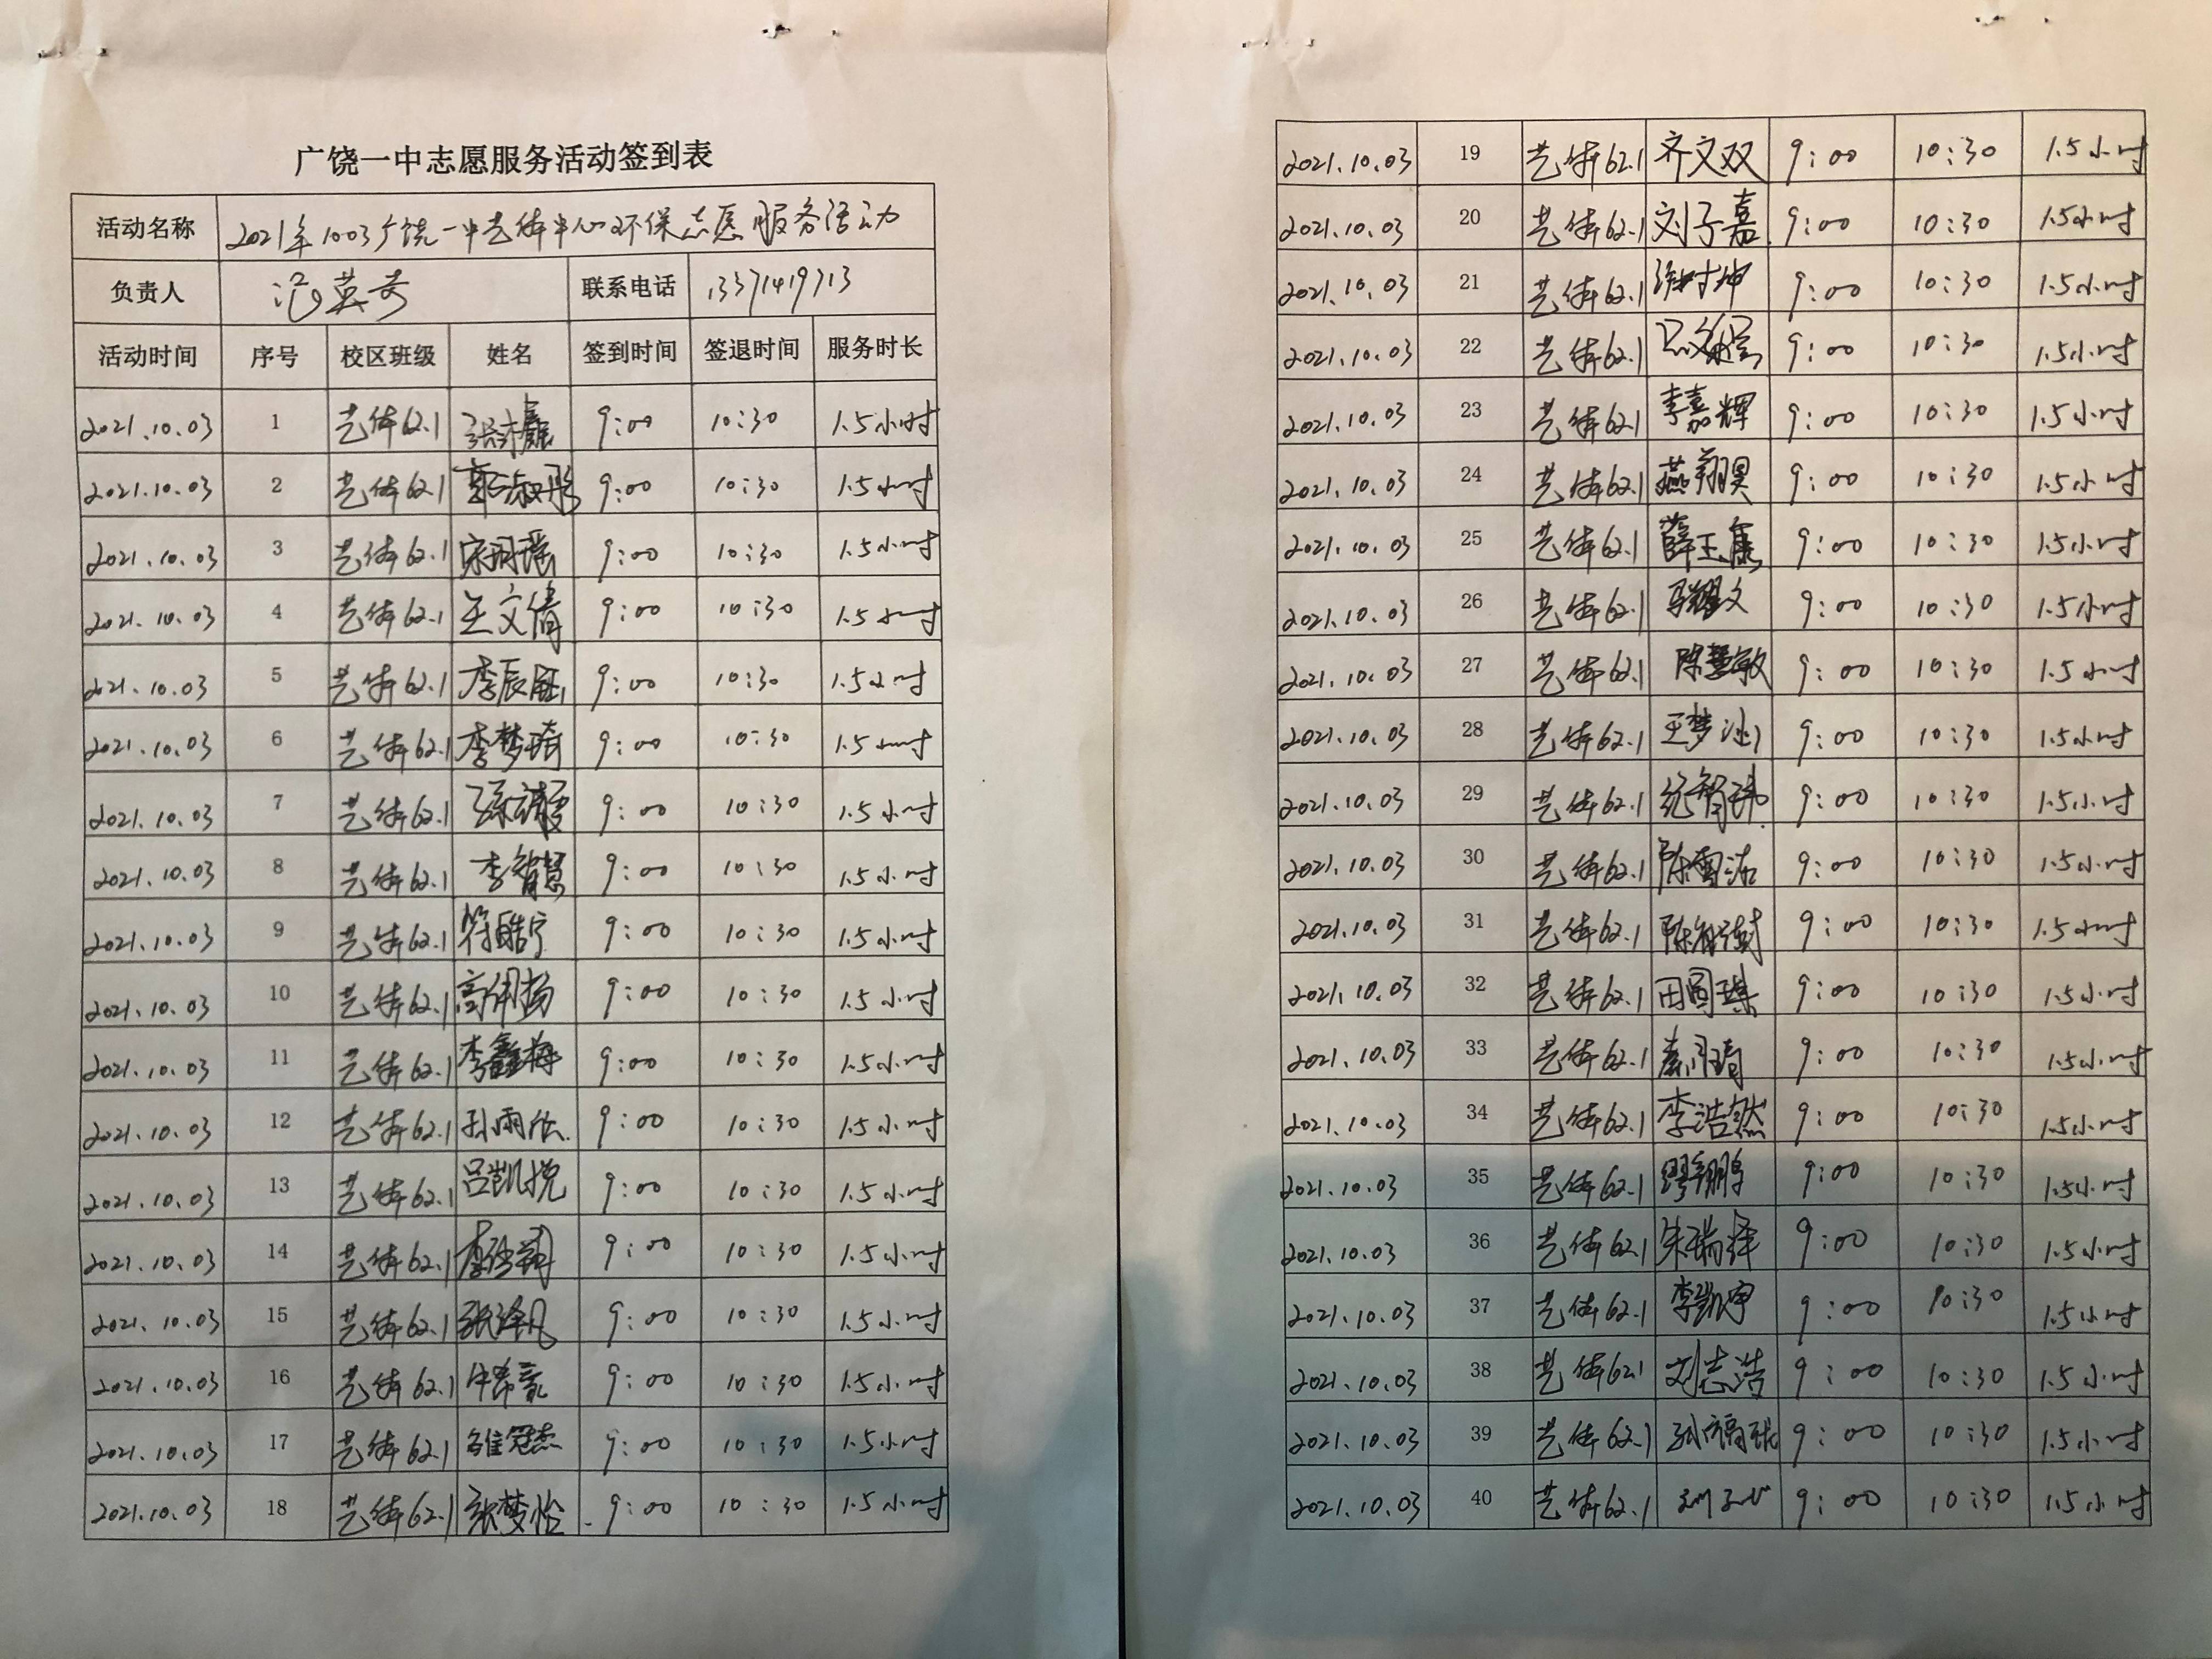 广饶一中志愿服务活动签到表
活动名称 2021年1003广饶一中艺体中心环保志愿服务活动
负责人 联系电话 13371419713
活动时间 序号 校区班级 姓名 签到时间 签退时间 服务时长
2021.10.03 1 艺体62.1 9:00 10:30 1.5小时
2021.10.03 2 艺体62.1 郭淑彤 9:00 10:30 1.5小时
2021.10.03 3 艺体62.1 宋玥瑶 9:00 10:30 1.5小时
2021.10.03 4 艺体62.1 王文倩 9:00 10:30 1.5小时
2021.10.03 5 艺体62.1 李辰钰 9:00 10:30 1.5小时
2021.10.03 6 艺体62.1 李梦琦 9:00 10:30 1.5小时
2021.10.03 7 艺体62.1 9:00 10:30 1.5小时
2021.10.03 8 艺体62.1 李智慧 9:00 10:30 1.5小时
2021.10.03 9 艺体62.1 符皓宁 9:00 10:30 1.5小时
2021.10.03 10 艺体62.1 高伟扬 9:00 10:30 1.5小时
2021.10.03 11 艺体62.1 李鑫梅 9:00 10:30 1.5小时
2021.10.03 12 艺体62.1 孙雨欣 9:00 10:30 1.5小时
2021.10.03 13 艺体62.1 吕凯悦 9:00 10:30 1.5小时
2021.10.03 14 艺体62.1 9:00 10:30 1.5小时
2021.10.03 15 艺体62.1 张泽凡 9:00 10:30 1.5小时
2021.10.03 16 艺体62.1 9:00 10:30 1.5小时
2021.10.03 17 艺体62.1 雒冠杰 9:00 10:30 1.5小时
2021.10.03 18 艺体62.1 张梦怡 9:00 10:30 1.5小时
2021.10.03 19 艺体62.1 齐文双 9:00 10:30 1.5小时
2021.10.03 20 艺体62.1 刘子嘉 9:00 10:30 1.5小时
2021.10.03 21 艺体62.1 9:00 10:30 1.5小时
2021.10.03 22 艺体62.1 9:00 10:30 1.5小时
2021.10.03 23 艺体62.1 李嘉辉 9:00 10:30 1.5小时
2021.10.03 24 艺体62.1 燕翔昊 9:00 10:30 1.5小时
2021.10.03 25 艺体62.1 薛玉康 9:00 10:30 1.5小时
2021.10.03 26 艺体62.1 马耀文 9:00 10:30 1.5小时
2021.10.03 27 艺体62.1 陈慧敏 9:00 10:30 1.5小时
2021.10.03 28 艺体62.1 9:00 10:30 1.5小时
2021.10.03 29 艺体62.1 9:00 10:30 1.5小时
2021.10.03 30 艺体62.1 陈雪洁 9:00 10:30 1.5小时
2021.10.03 31 艺体62.1 9:00 10:30 1.5小时
2021.10.03 32 艺体62.1 田圆臻 9:00 10:30 1.5小时
2021.10.03 33 艺体62.1 9:00 10:30 1.5小时
2021.10.03 34 艺体62.1 李浩然 9:00 10:30 1.5小时
2021.10.03 35 艺体62.1 9:00 10:30 1.5小时
2021.10.03 36 艺体62.1 朱瑞泽 9:00 10:30 1.5小时
2021.10.03 37 艺体62.1 李凯宇 9:00 10:30 1.5小时
2021.10.03 38 艺体62.1 刘志浩 9:00 10:30 1.5小时
2021.10.03 39 艺体62.1 9:00 10:30 1.5小时
2021.10.03 40 艺体62.1 9:00 10:30 1.5小时